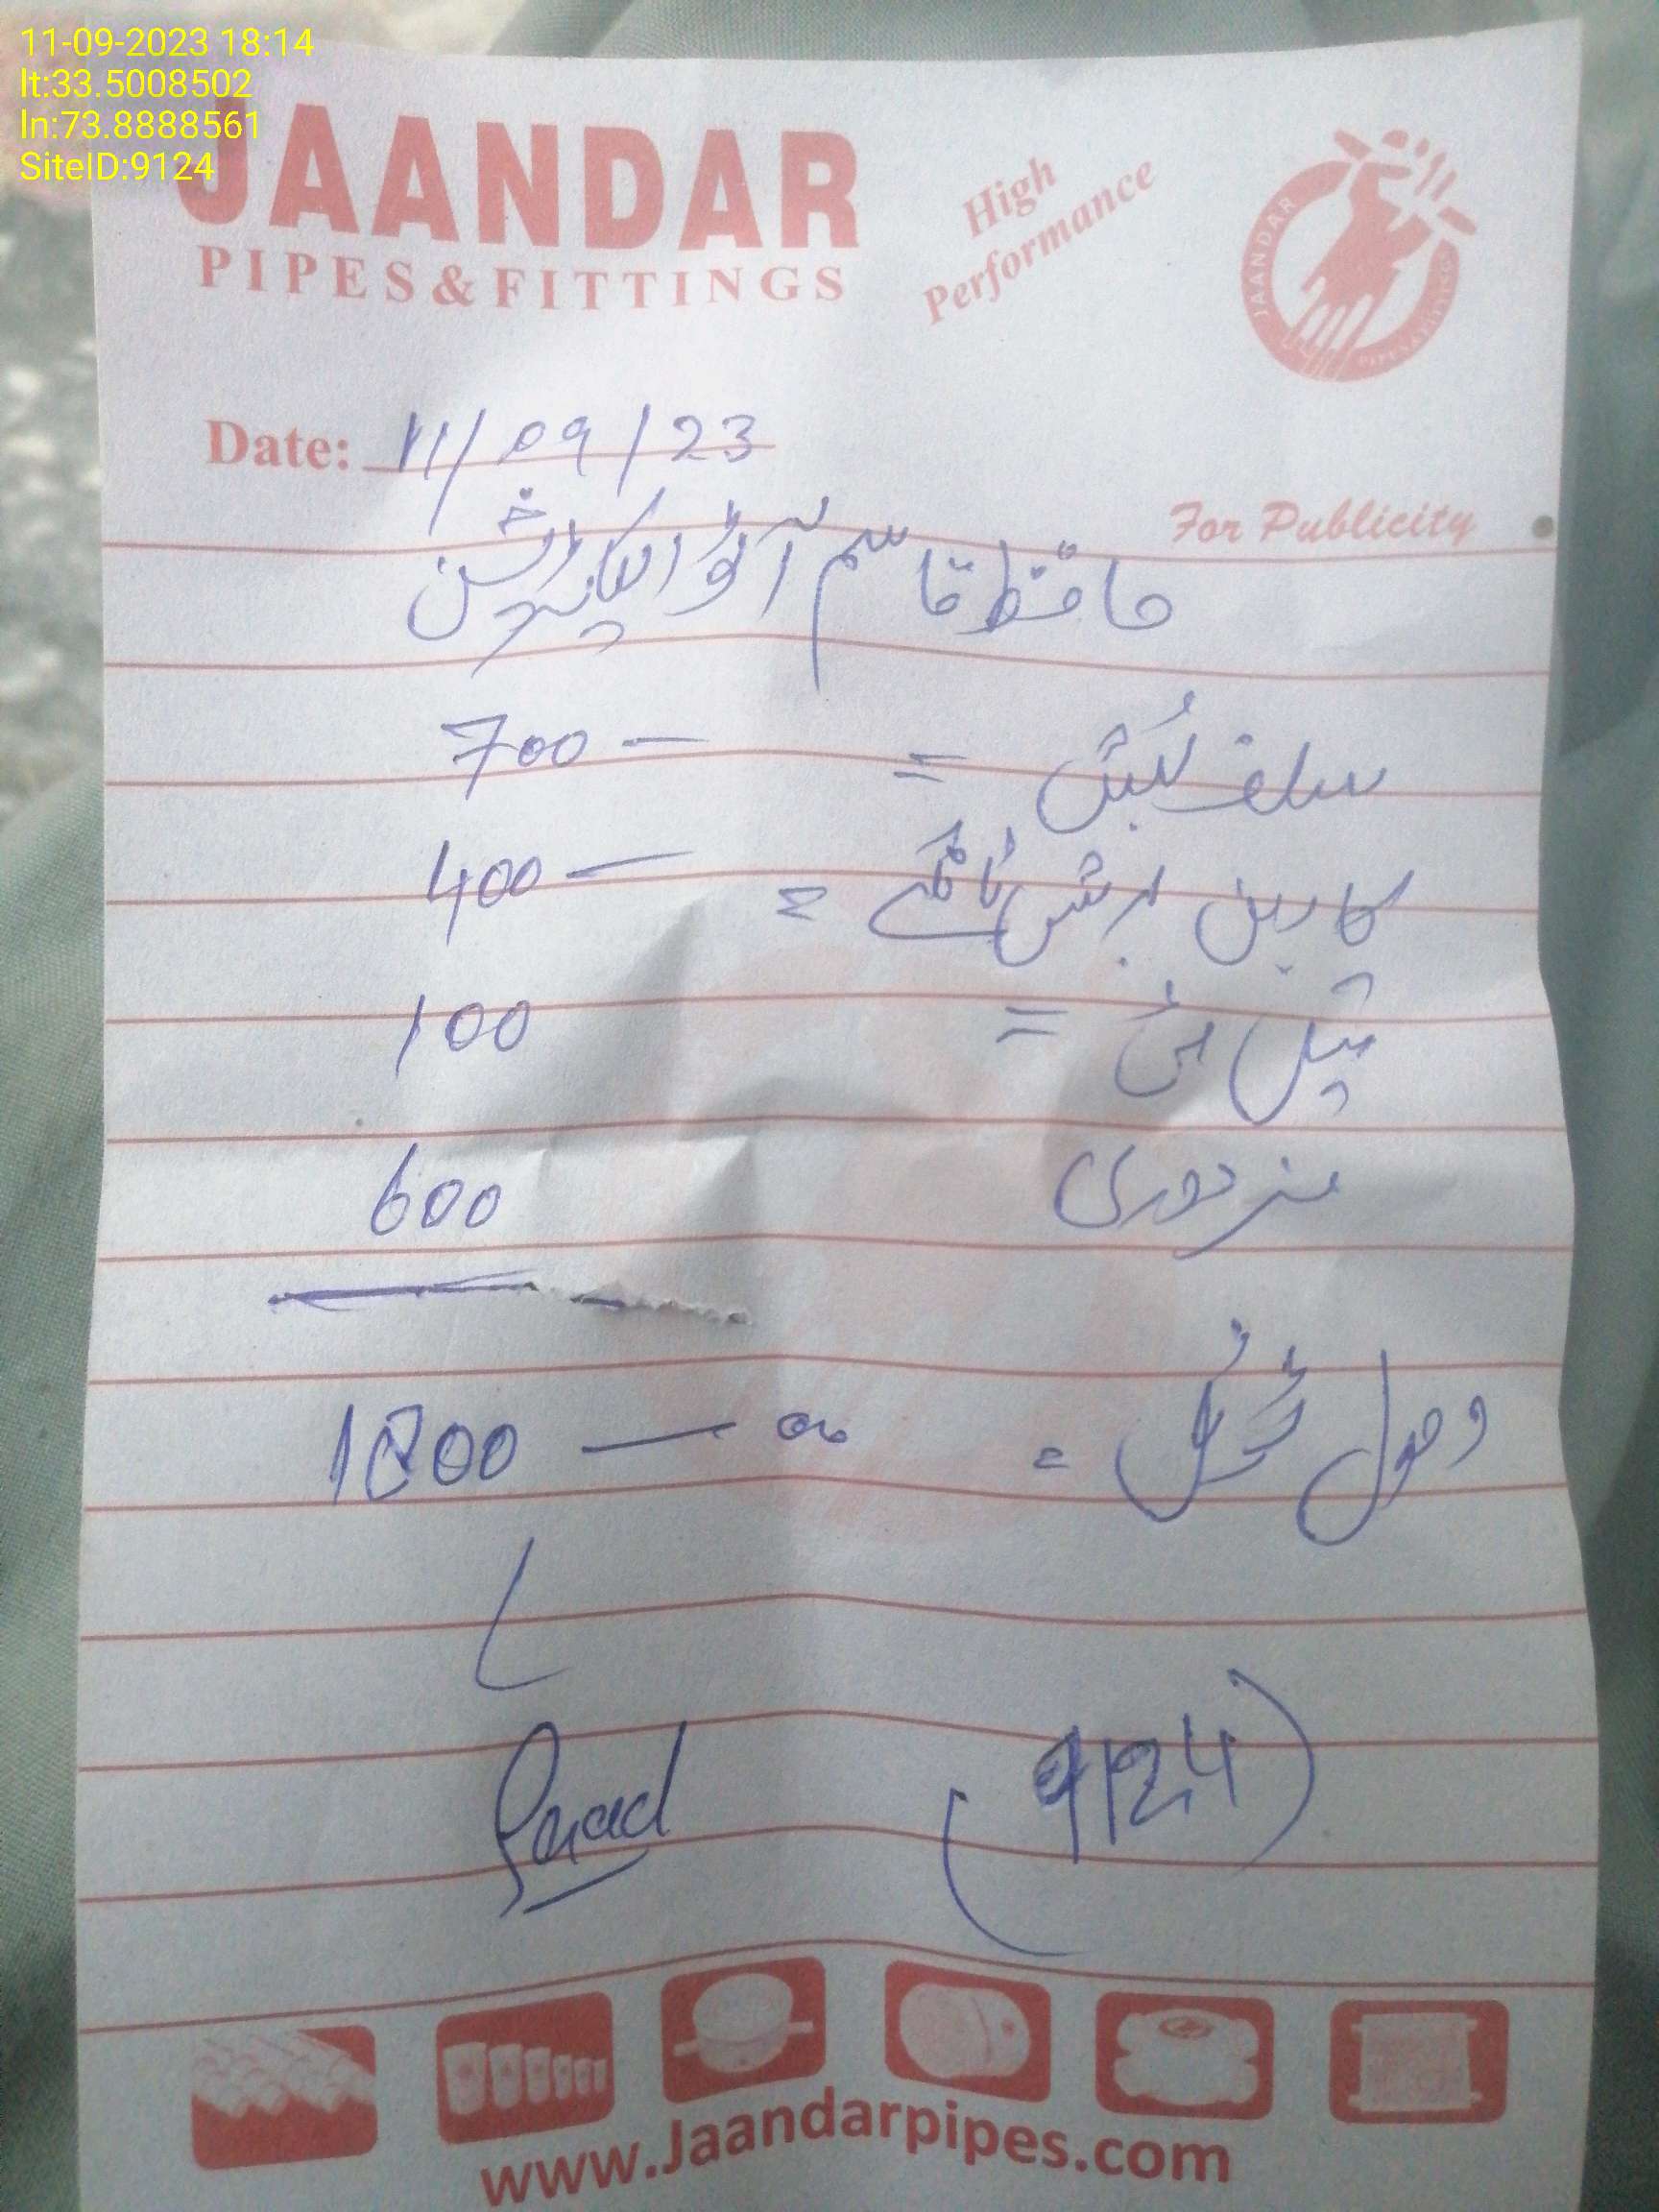 11-09-2023 18:14
lt:33.5008502
ln:73.8888561
SiteID:9124
JAANDAR
PIPES & FITTINGS
High
Performance
JAANDAR
Date: 11/09/23
For Publicity
حافظ قاسم آٹو الیکٹریشن
سلف بش = 700 —
کاربن برش ٹانکے = 400 —
= 100
مزدوری 600
وصول ٹوٹل = 1800 —
Paid
(9124)
www.Jaandarpipes.com